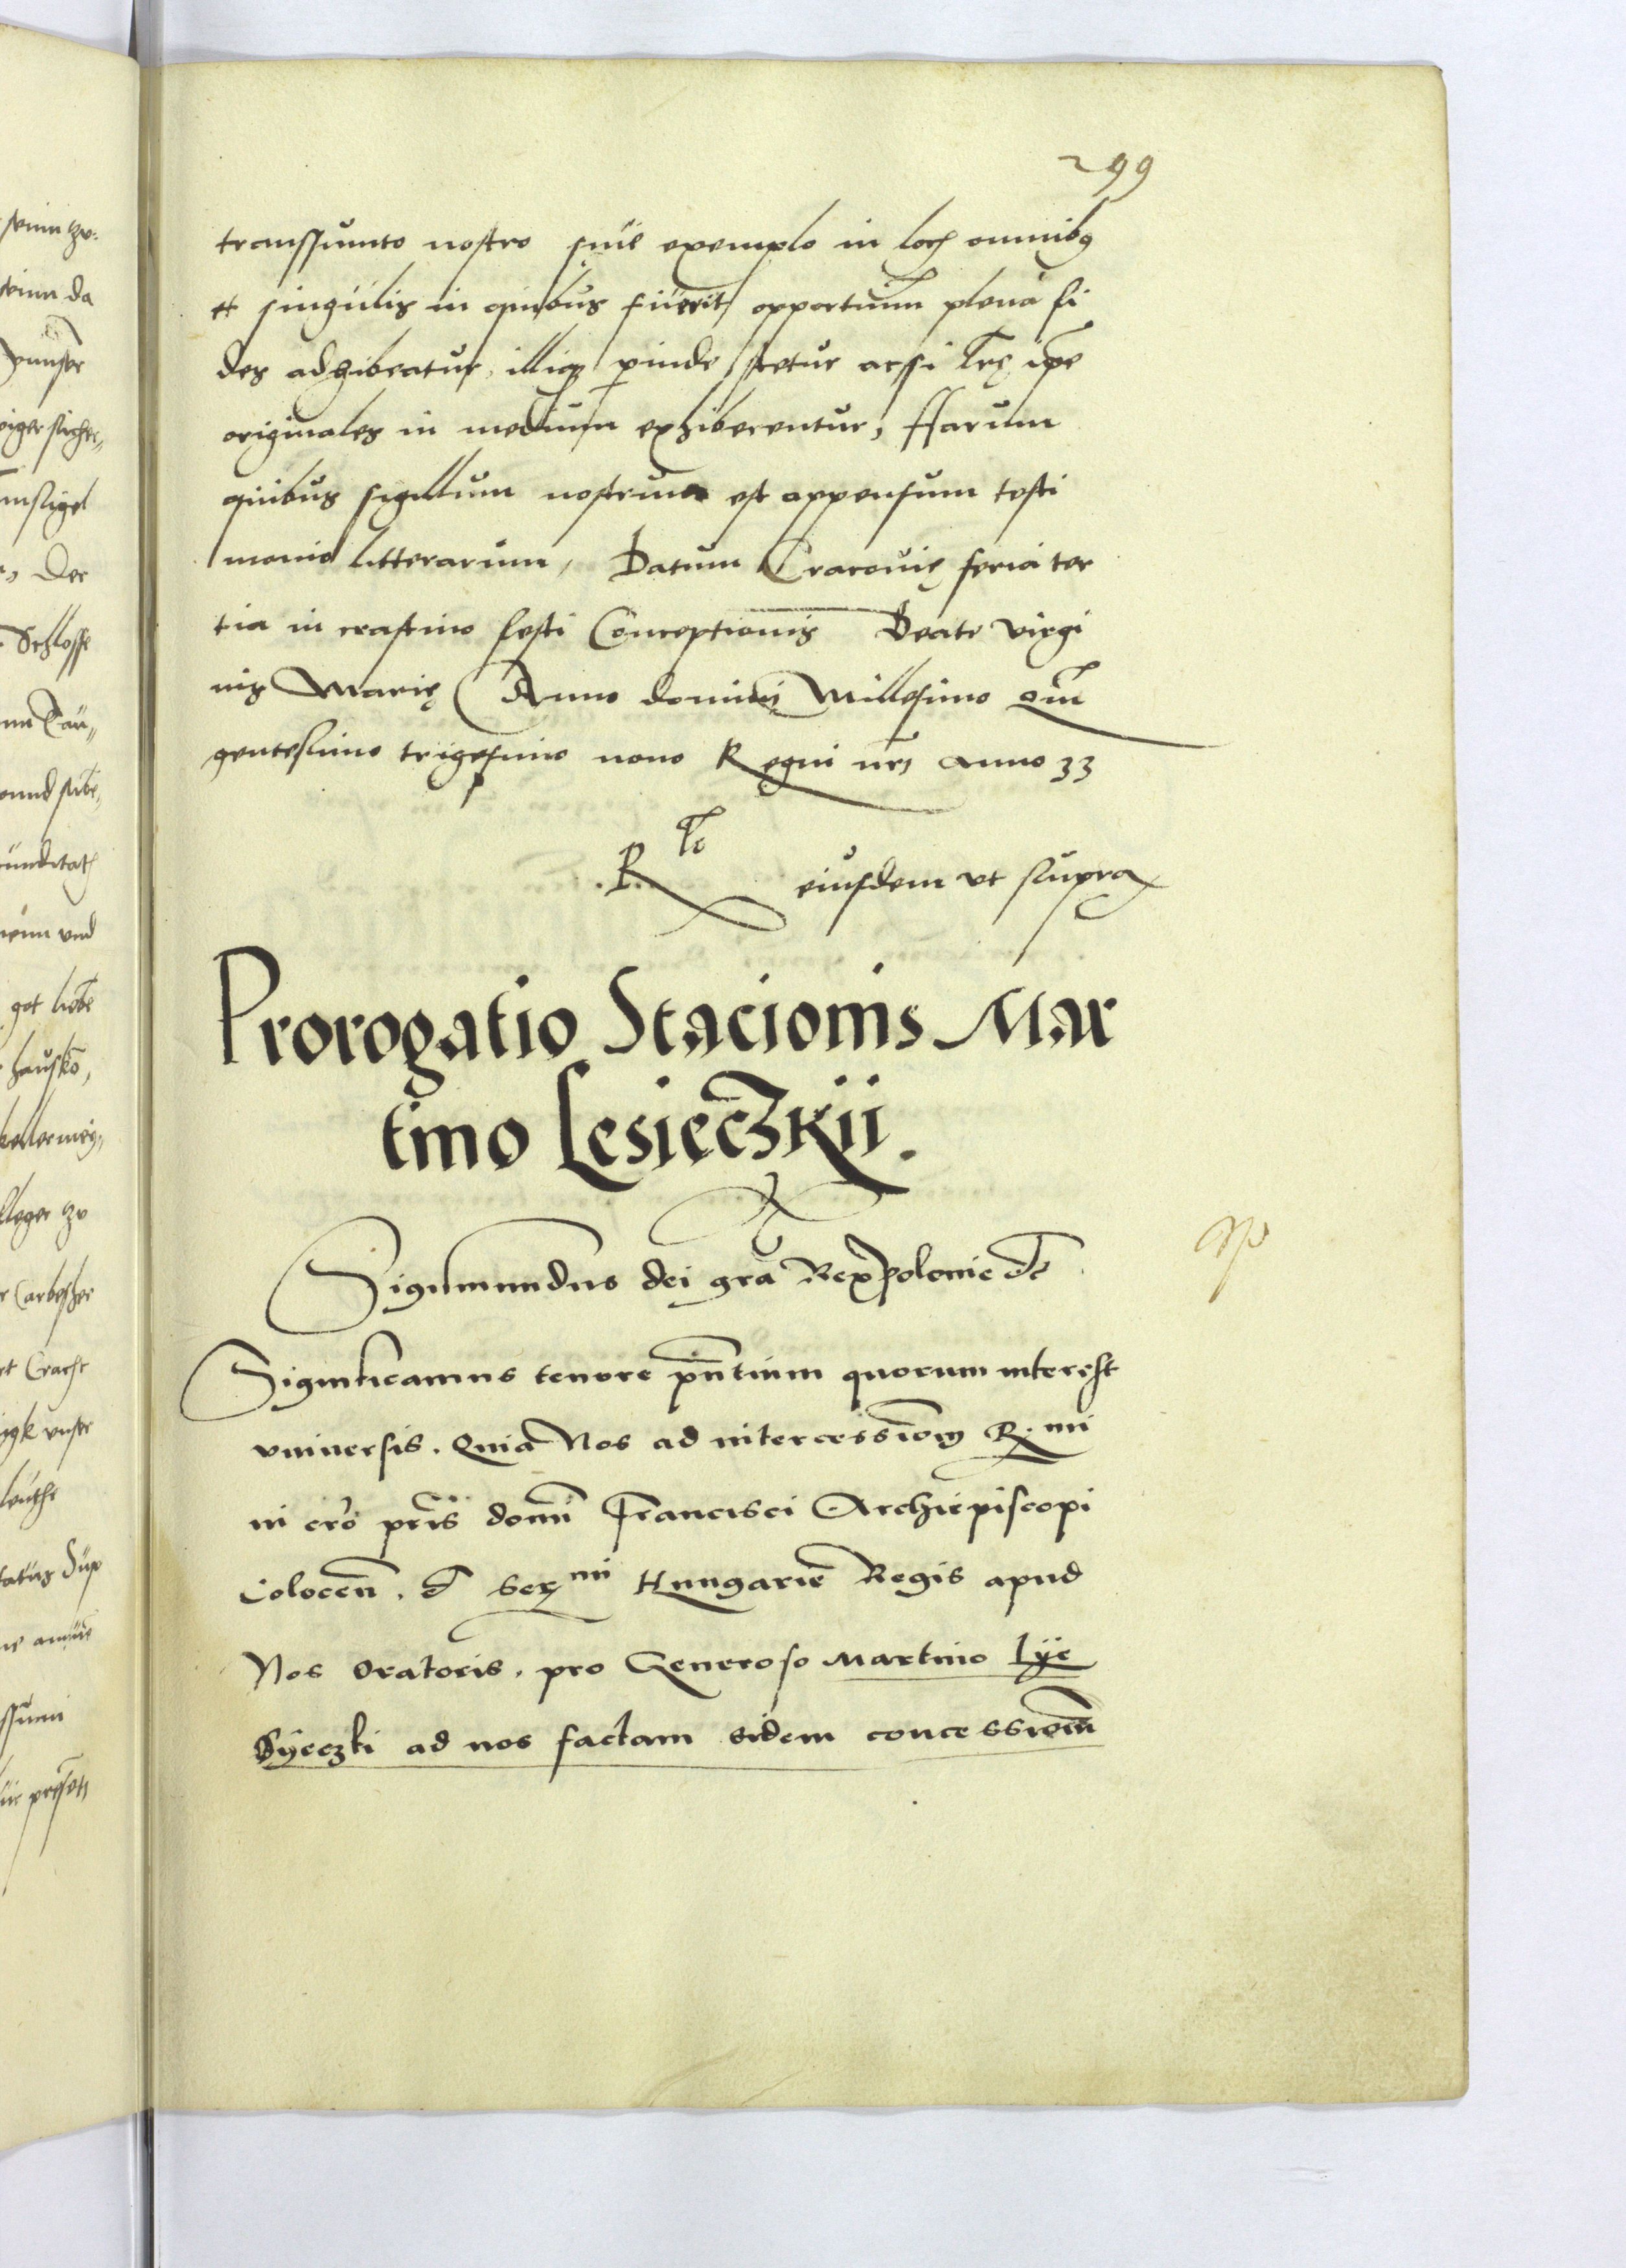 299
transsumto nostro sive exemplo in locis omnibus
et singulis in quibus fuerit opportunum plena fi
des adhibeatur, illisque perinde stetur acsi lrę ipse
originales in medium exhiberentur, Harum
quibus sigillum nostrum est appensum testi
monio litterarum, Datum Cracovię feria ter
tia in crastino festi Conceptionis Beate virgi
nis Marię Anno domini Millesimo quin
gentesimo trigesimo nono Regni nri anno 33
Rlo eiusdem ut supra
Prorogatio Stacionis Mar
tino Lesieczkii.
Sigismundus dei gra Rex Polonie etc
Significamus tenore pntium quorum interest
universis. Quia Nos ad intercessionem R.mi
in cro pris domi Francisci Archiepiscopi
Colocen. et Sermi Hungarie Regis apud
Nos oratoris. pro Generoso Martino Lye
Syeczki ad nos factam eidem concessiom
seinn zu
seinn da
unser
sigel
Der
Schlosse
und
got liebe
zu
unser